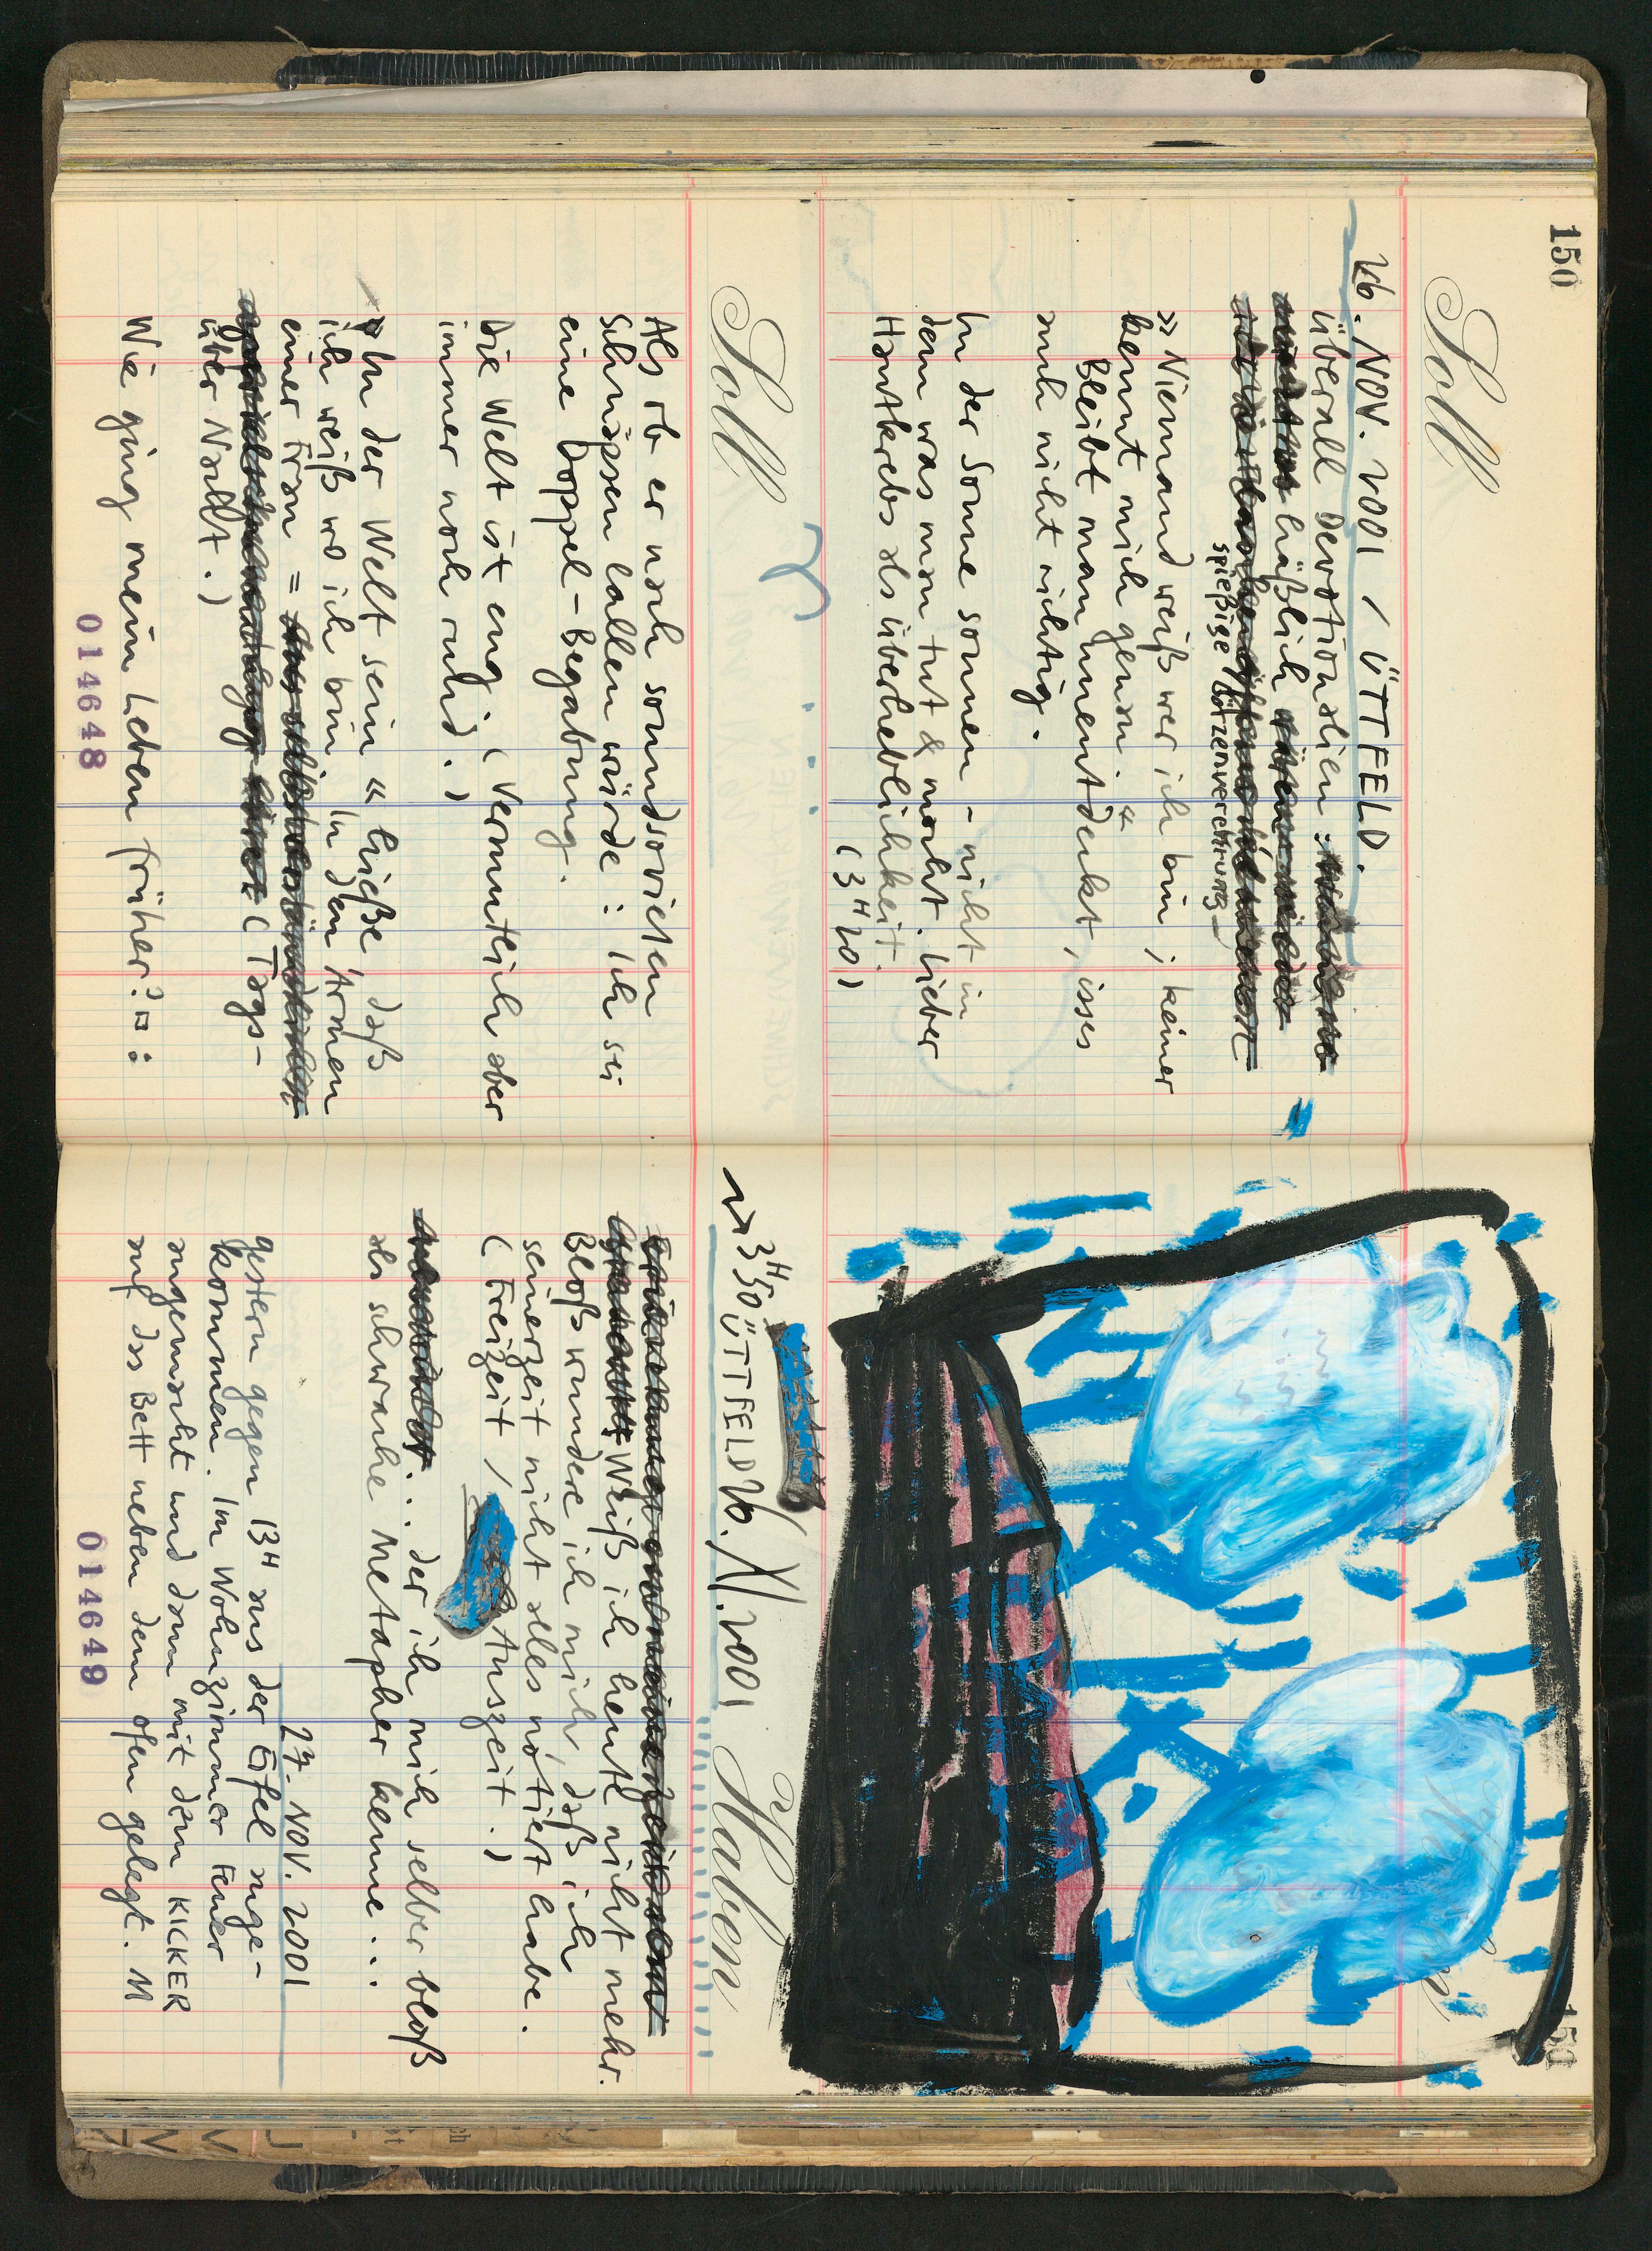 150
Soll
26. NOV. 2001 / ÜTTFELD.
überall Devotionalien:
häßlich
spießige Götzenverehrung
»Niemand weiß wer ich bin, keiner
kennt mich genau.«
Bleibt man unentdeckt, isses
auch nicht richtig.
In der Sonne sonnen – nicht in
dem was man tut & macht. Lieber
Hautkrebs als Überheblichkeit.
(3H20)
Soll
Als ob er nach soundsovielen
Schnäpsen lallen würde: ich sei
eine Doppel-Begabung.
Die Welt ist eng. (Vermutlich aber
immer noch rund.)
»In der Welt sein« hieße, daß
ich weiß wo ich bin. In den Armen
einer Frau =
(Tags-
über Nacht.)
Wie ging mein Leben früher?:
014648
151
3H50 ÜTTFELD 26./XI.2001
Haben
Weiß ich heute nicht mehr.
Bloß wundere ich mich, daß ich
seinerzeit nicht alles notiert habe.
(Freizeit / Auszeit.)
... der ich mich selber bloß
als schwache Metapher kenne...
27. NOV. 2001
Gestern gegen 13H aus der Eifel ange-
kommen. Im Wohnzimmer Feuer
angemacht und dann mit dem KICKER
auf das Bett neben dem Ofen gelegt. M
014649